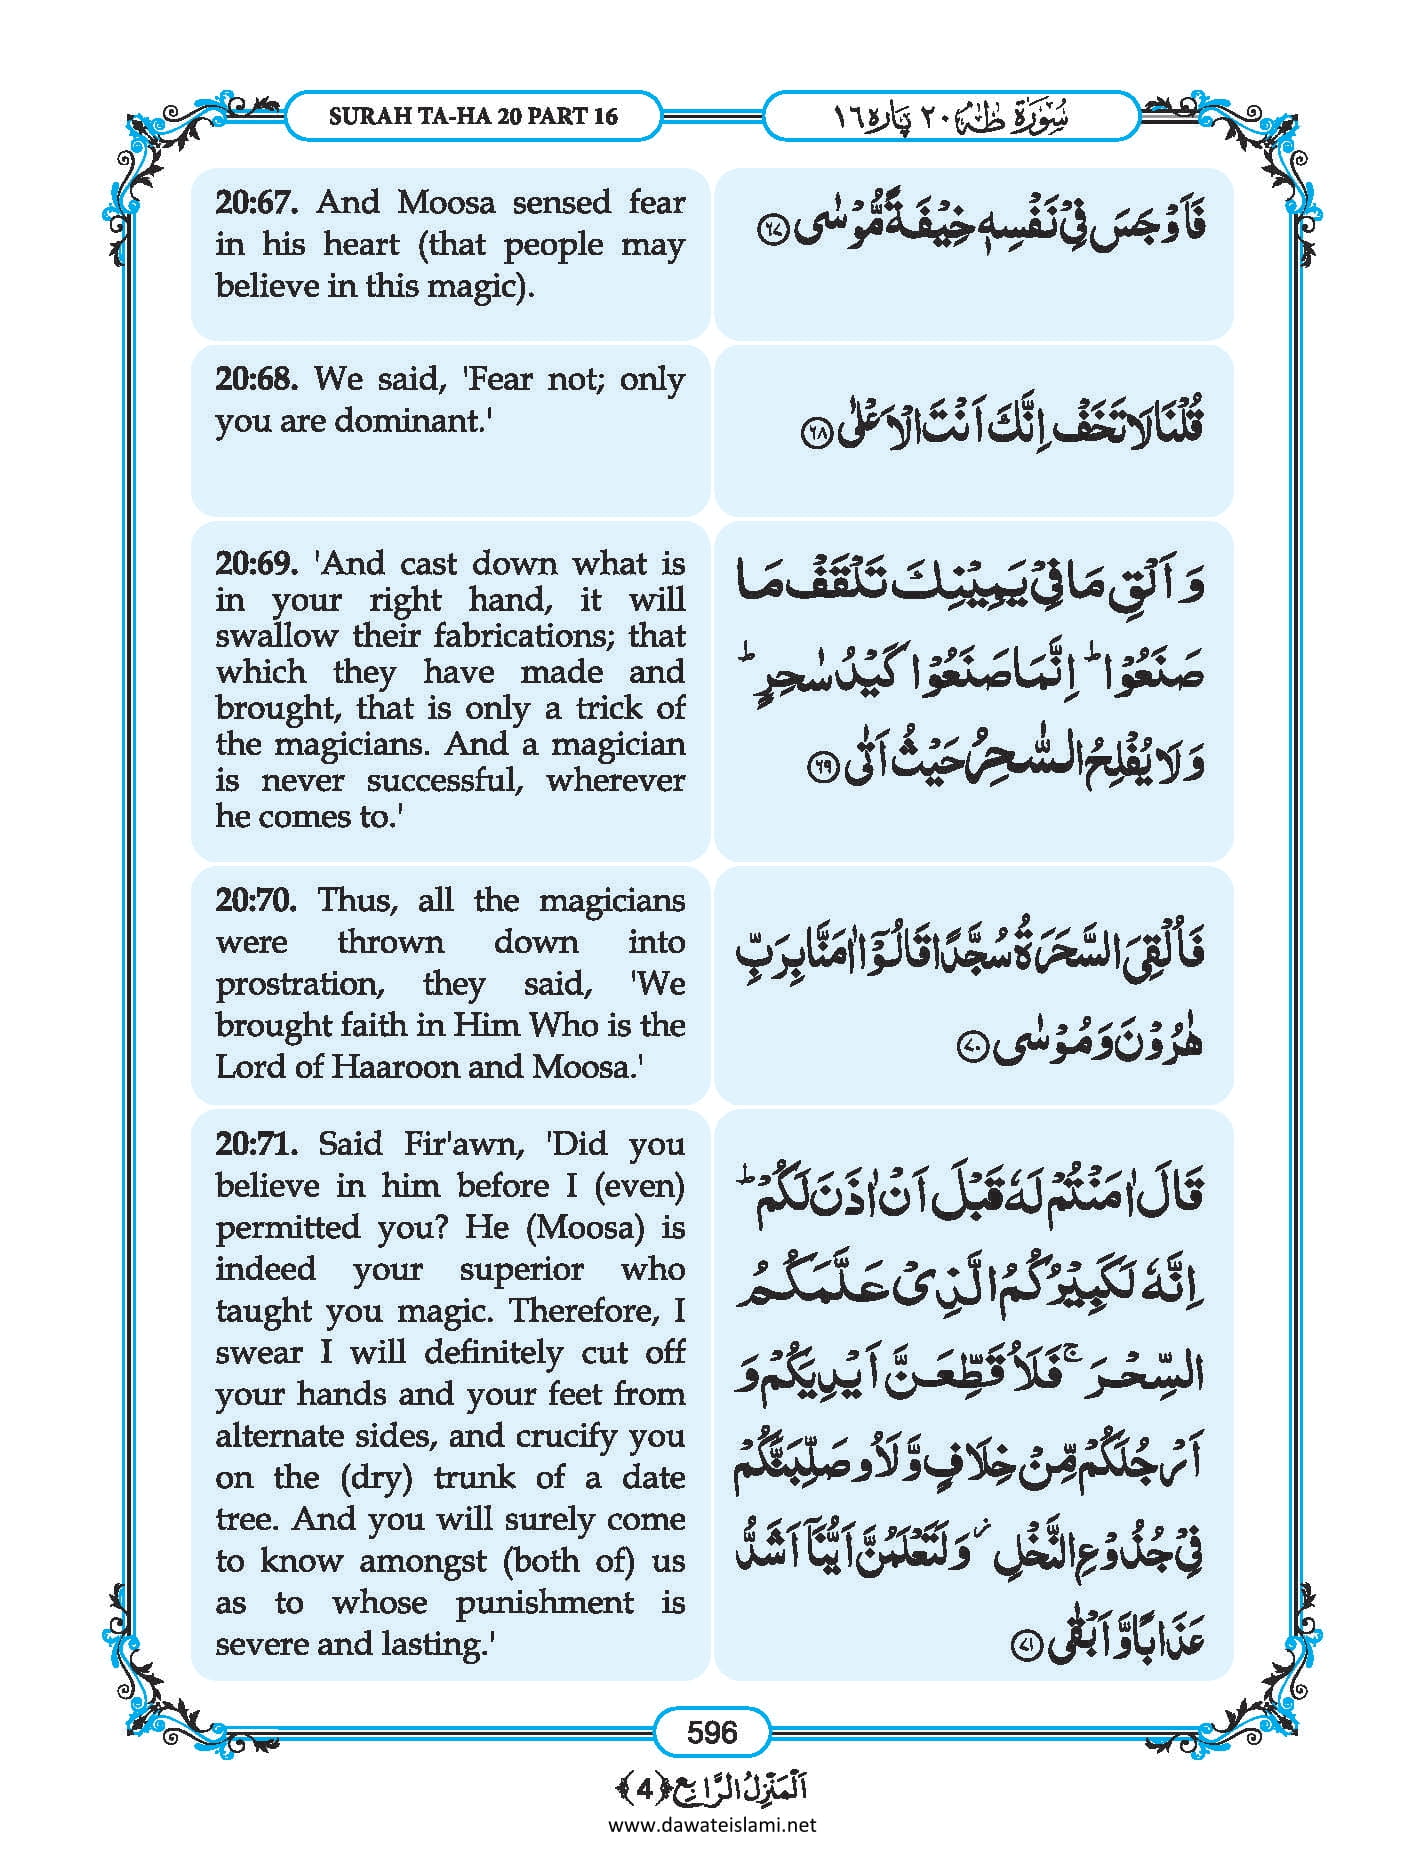 SURAH TA-HA 20 PART 16
سُوْرَۃ طٰہٰ ٢٠ پارہ ١٦
20:67. And Moosa sensed fear
in his heart (that people may
believe in this magic).
فَاَوْجَسَ فِیْ نَفْسِهٖ خِیْفَةً مُّوْسٰى ﴿۶۷﴾
20:68. We said, 'Fear not; only
you are dominant.'
قُلْنَا لَا تَخَفْ اِنَّكَ اَنْتَ الْاَعْلٰى ﴿۶۸﴾
20:69. 'And cast down what is
in your right hand, it will
swallow their fabrications; that
which they have made and
brought, that is only a trick of
the magicians. And a magician
is never successful, wherever
he comes to.'
وَ اَلْقِ مَا فِیْ یَمِیْنِكَ تَلْقَفْ مَا
صَنَعُوْاؕ اِنَّمَا صَنَعُوْا كَیْدُ سٰحِرٍؕ
وَ لَا یُفْلِحُ السّٰحِرُ حَیْثُ اَتٰى ﴿۶۹﴾
20:70. Thus, all the magicians
were thrown down into
prostration, they said, 'We
brought faith in Him Who is the
Lord of Haaroon and Moosa.'
فَاُلْقِیَ السَّحَرَةُ سُجَّدًا قَالُوْۤا اٰمَنَّا بِرَبِّ
هٰرُوْنَ وَ مُوْسٰى ﴿۷۰﴾
20:71. Said Fir'awn, 'Did you
believe in him before I (even)
permitted you? He (Moosa) is
indeed your superior who
taught you magic. Therefore, I
swear I will definitely cut off
your hands and your feet from
alternate sides, and crucify you
on the (dry) trunk of a date
tree. And you will surely come
to know amongst (both of) us
as to whose punishment is
severe and lasting.'
قَالَ اٰمَنْتُمْ لَهٗ قَبْلَ اَنْ اٰذَنَ لَكُمْؕ
اِنَّهٗ لَكَبِیْرُكُمُ الَّذِیْ عَلَّمَكُمُ
السِّحْرَۚ فَلَاُقَطِّعَنَّ اَیْدِیَكُمْ وَ
اَرْجُلَكُمْ مِّنْ خِلَافٍ وَّ لَاُوصَلِّبَنَّكُمْ
فِیْ جُذُوْعِ النَّخْلِ٘ وَ لَتَعْلَمُنَّ اَیُّنَاۤ اَشَدُّ
عَذَابًا وَّ اَبْقٰى ﴿۷۱﴾
596
اَلْمَنْزِلُ الرَّابِع ﴿4﴾
www.dawateislami.net